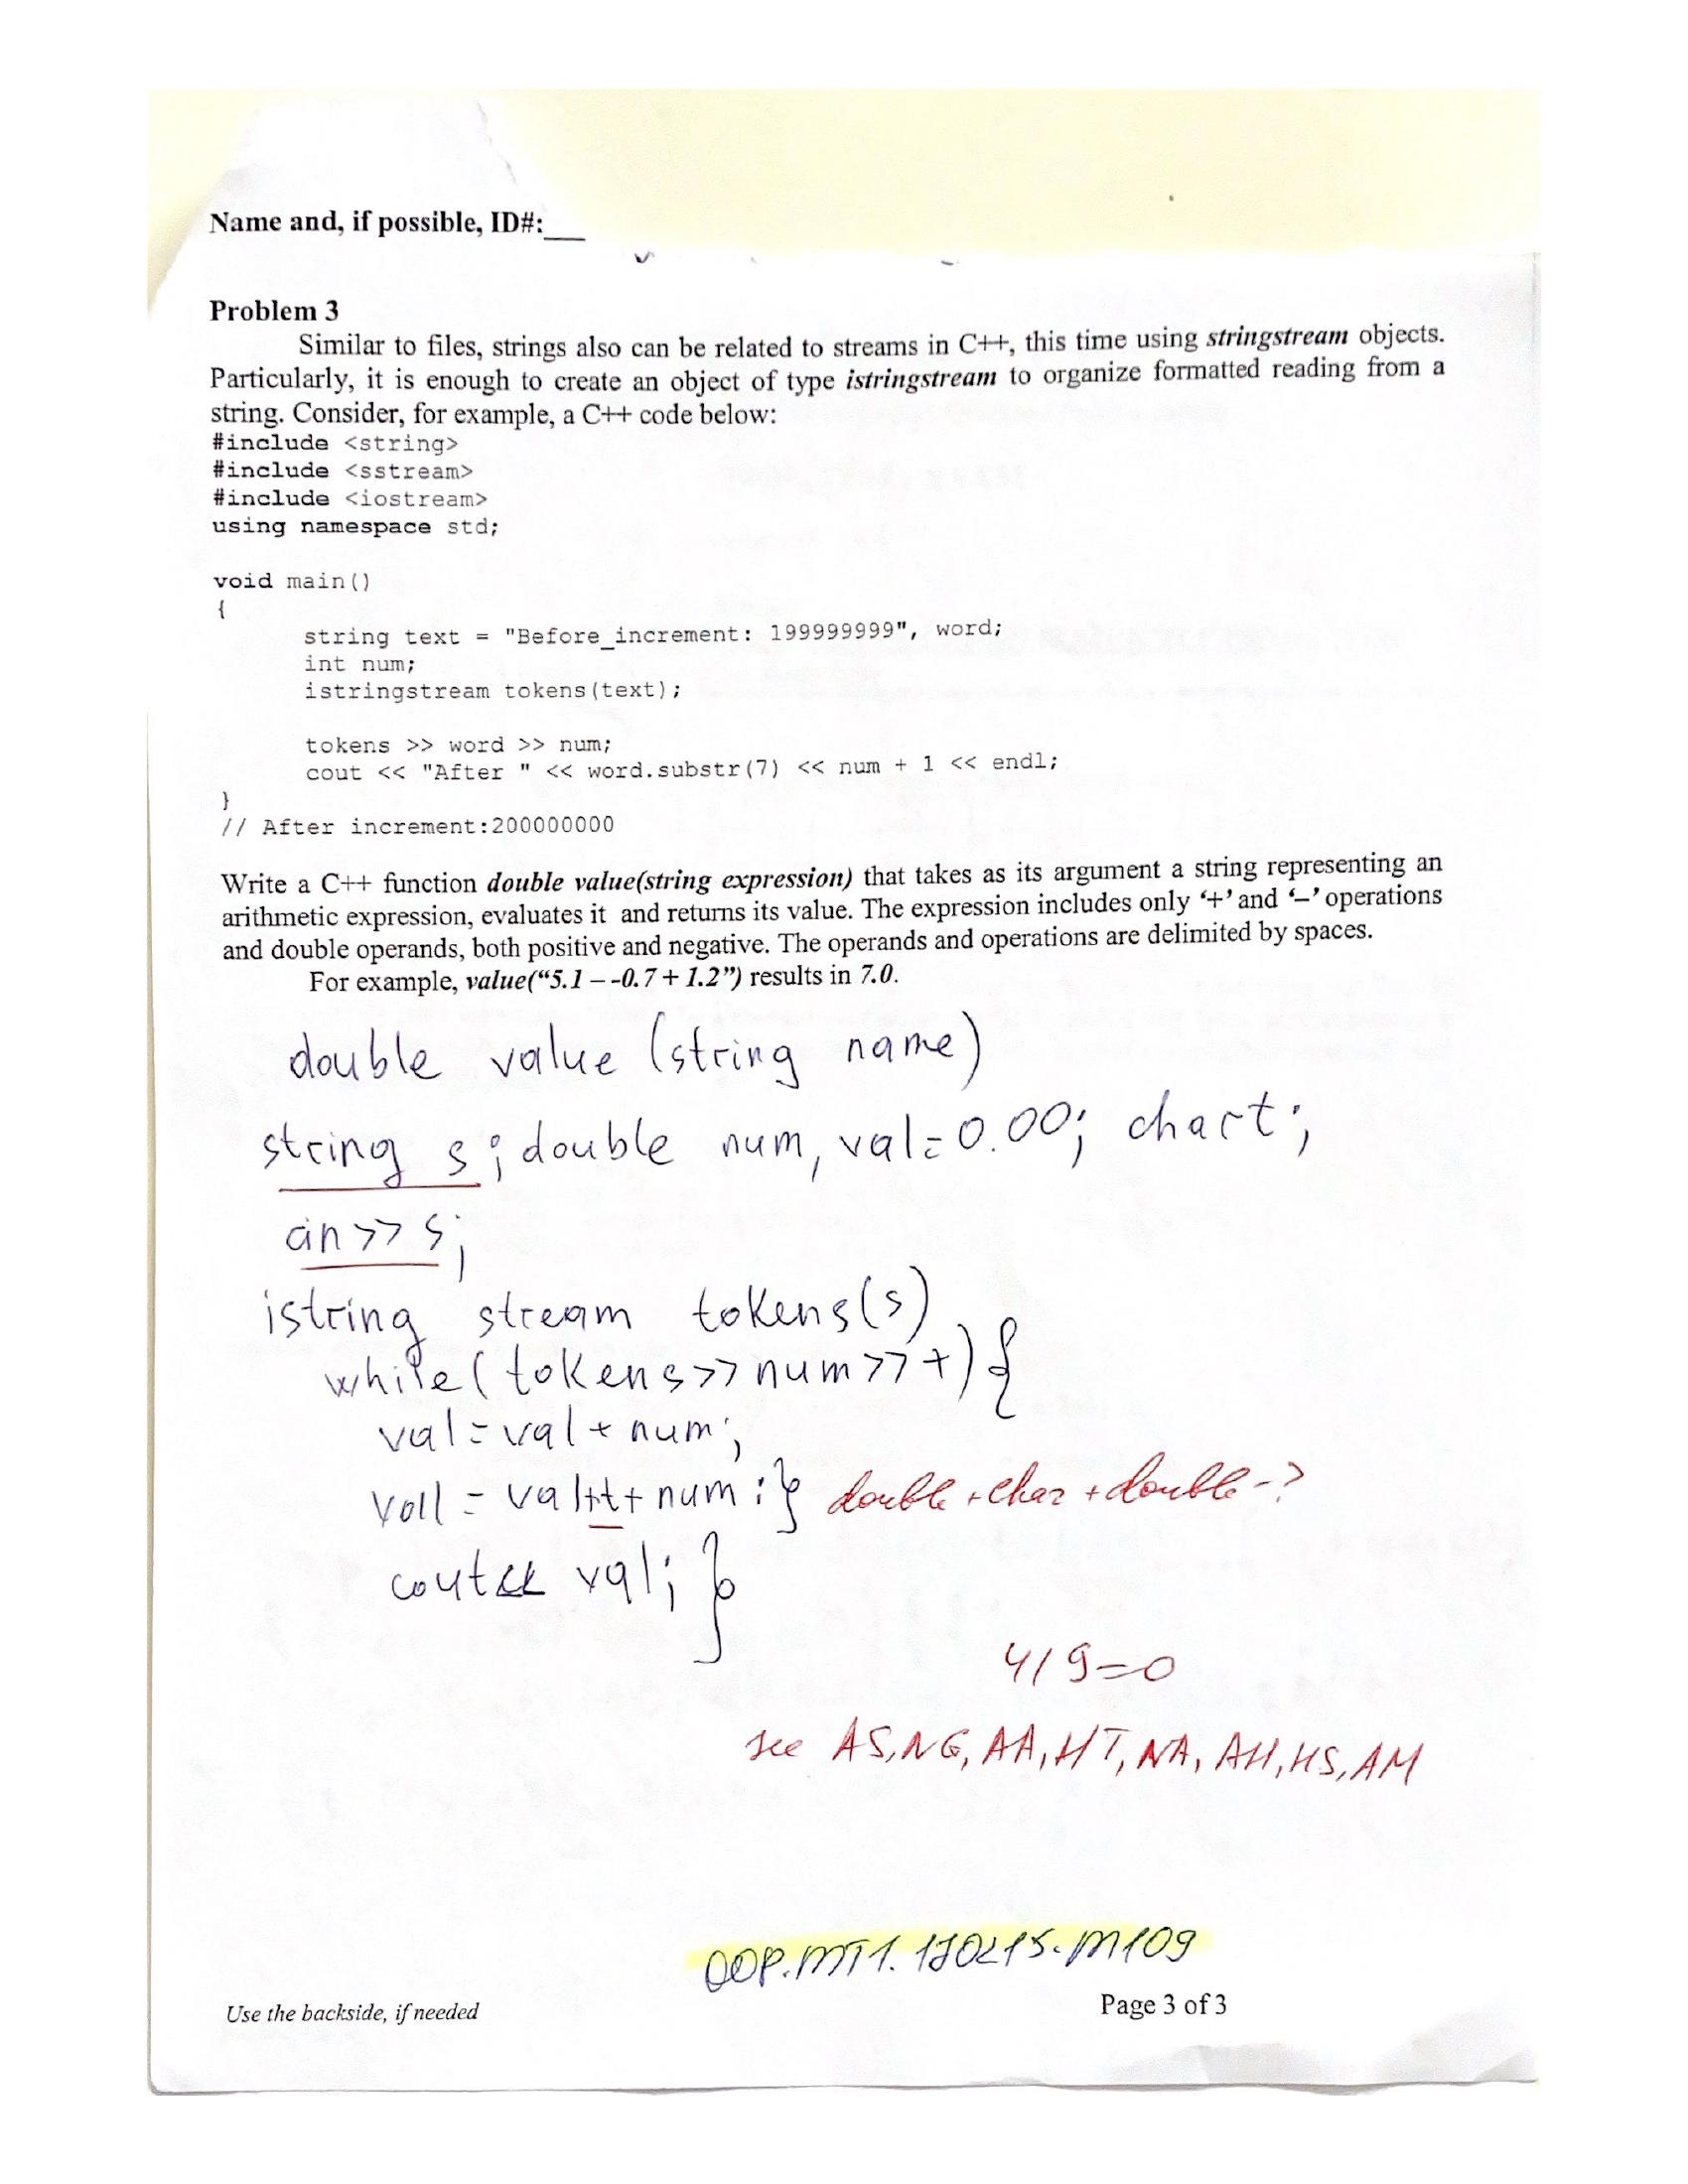 Name and, if possible, ID#:___
Problem 3
Similar to files, strings also can be related to streams in C++, this time using stringstream objects.
Particularly, it is enough to create an object of type istringstream to organize formatted reading from a
string. Consider, for example, a C++ code below:
#include <string>
#include <sstream>
#include <iostream>
using namespace std;
void main()
{
string text = "Before_increment: 199999999", word;
int num;
istringstream tokens(text);
tokens >> word >> num;
cout << "After " << word.substr(7) << num + 1 << endl;
}
// After increment:200000000
Write a C++ function double value(string expression) that takes as its argument a string representing an
arithmetic expression, evaluates it and returns its value. The expression includes only ‘+’ and ‘–’ operations
and double operands, both positive and negative. The operands and operations are delimited by spaces.
For example, value(“5.1 – -0.7 + 1.2”) results in 7.0.
double value (string name)
string s; double num, val=0.00; char t;
cin >> s;
istring stream tokens(s)
while (tokens >> num >> t) {
val = val + num;
val = val+t+ num ; } double + char + double - ?
cout << val; }
4/9=0
see AS, NG, AA, HT, NA, AH, HS, AM
OOP.MT1.170215.M109
Use the backside, if needed
Page 3 of 3